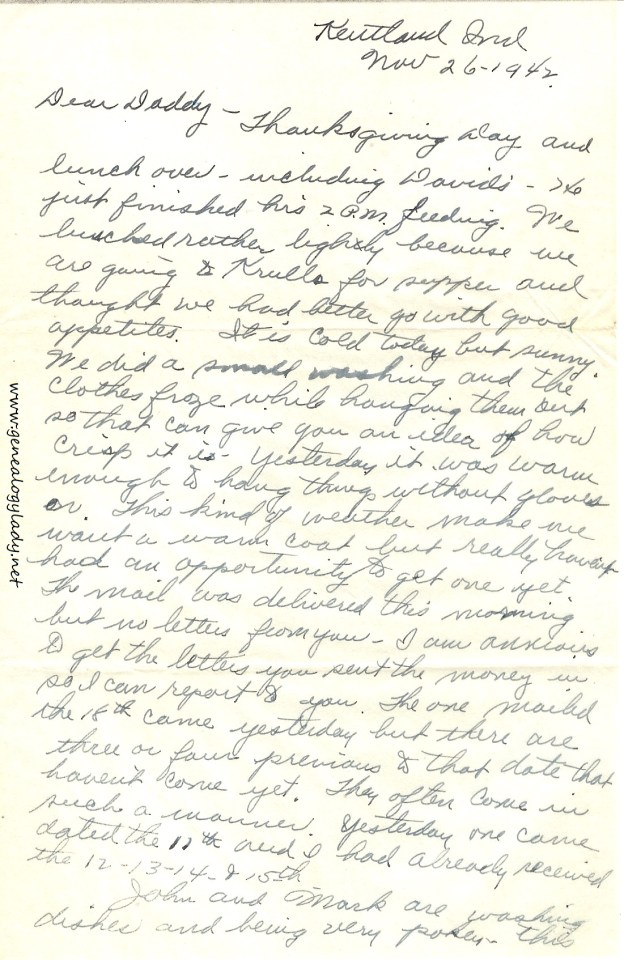 Kentland Ind
Nov 26-1942.
Dear Daddy - Thanksgiving Day and
lunch over - including David's - He
just finished his 2 P.M. feeding. We
lunched rather lightly because we
are going to Krulls for supper and
thought we had better go with good
appetites. It is cold today but sunny.
We did a small washing and the
clothes froze while hanging them out
so that can give you an idea of how
crisp it is - yesterday it was warm
enough to hang things without gloves
on. This kind of weather make me
want a warm coat but really haven't
had an opportunity to get one yet.
The mail was delivered this morning
but no letters from you - I am anxious
to get the letters you sent the money in
so I can report to you. The one mailed
the 18th came yesterday but there are
three or four previous to that date that
haven't come yet. They often come in
such a manner. Yesterday one came
dated the 11th and I had already received
the 12-13-14- & 15th
John and Mark are washing
dishes and being very pokey - this
www.genealogylady.net